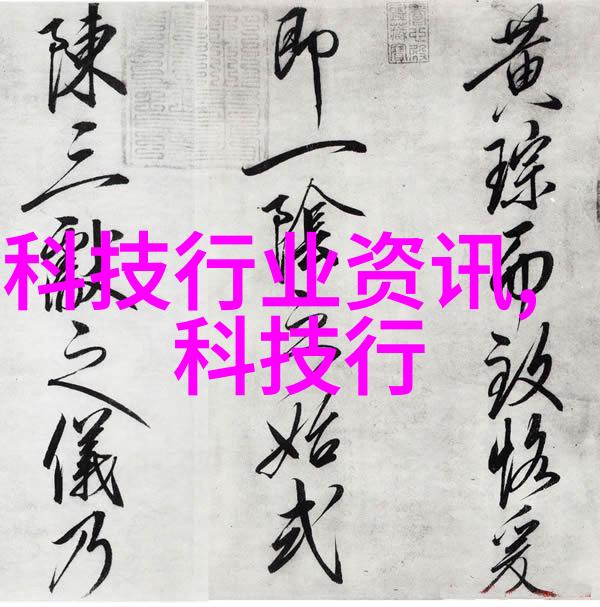 黄琮而致恪爰
即一陰之始式
陳三獻之儀乃
科技行业资讯,
科技行